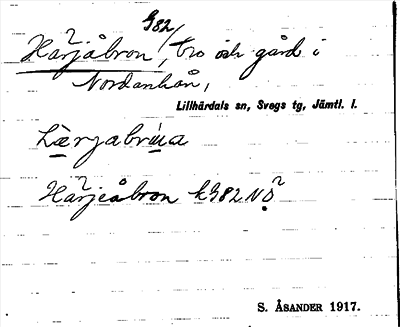 982/
Härjåbron, bro och gård i
Nordanhån,
Lillhärdals sn, Svegs tg, Jämtl. l.
Härjeåbron k982 NÖ?
S. ÅSANDER 1917.